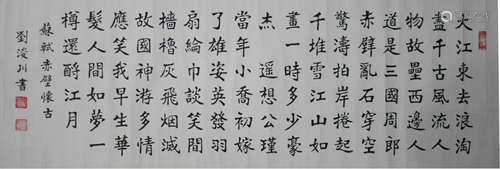 大江東去浪淘
盡千古風流人
物故壘西邊人
道是三國周郎
赤壁亂石穿空
驚濤拍岸捲起
千堆雪江山如
畫一時多少豪
杰遙想公瑾
當年小喬初嫁
了雄姿英發羽
扇綸巾談笑間
檣櫓灰飛烟滅
故國神游多情
應笑我早生華
髮人間如夢一
樽還酹江月
蘇軾赤壁懷古
劉浚川書